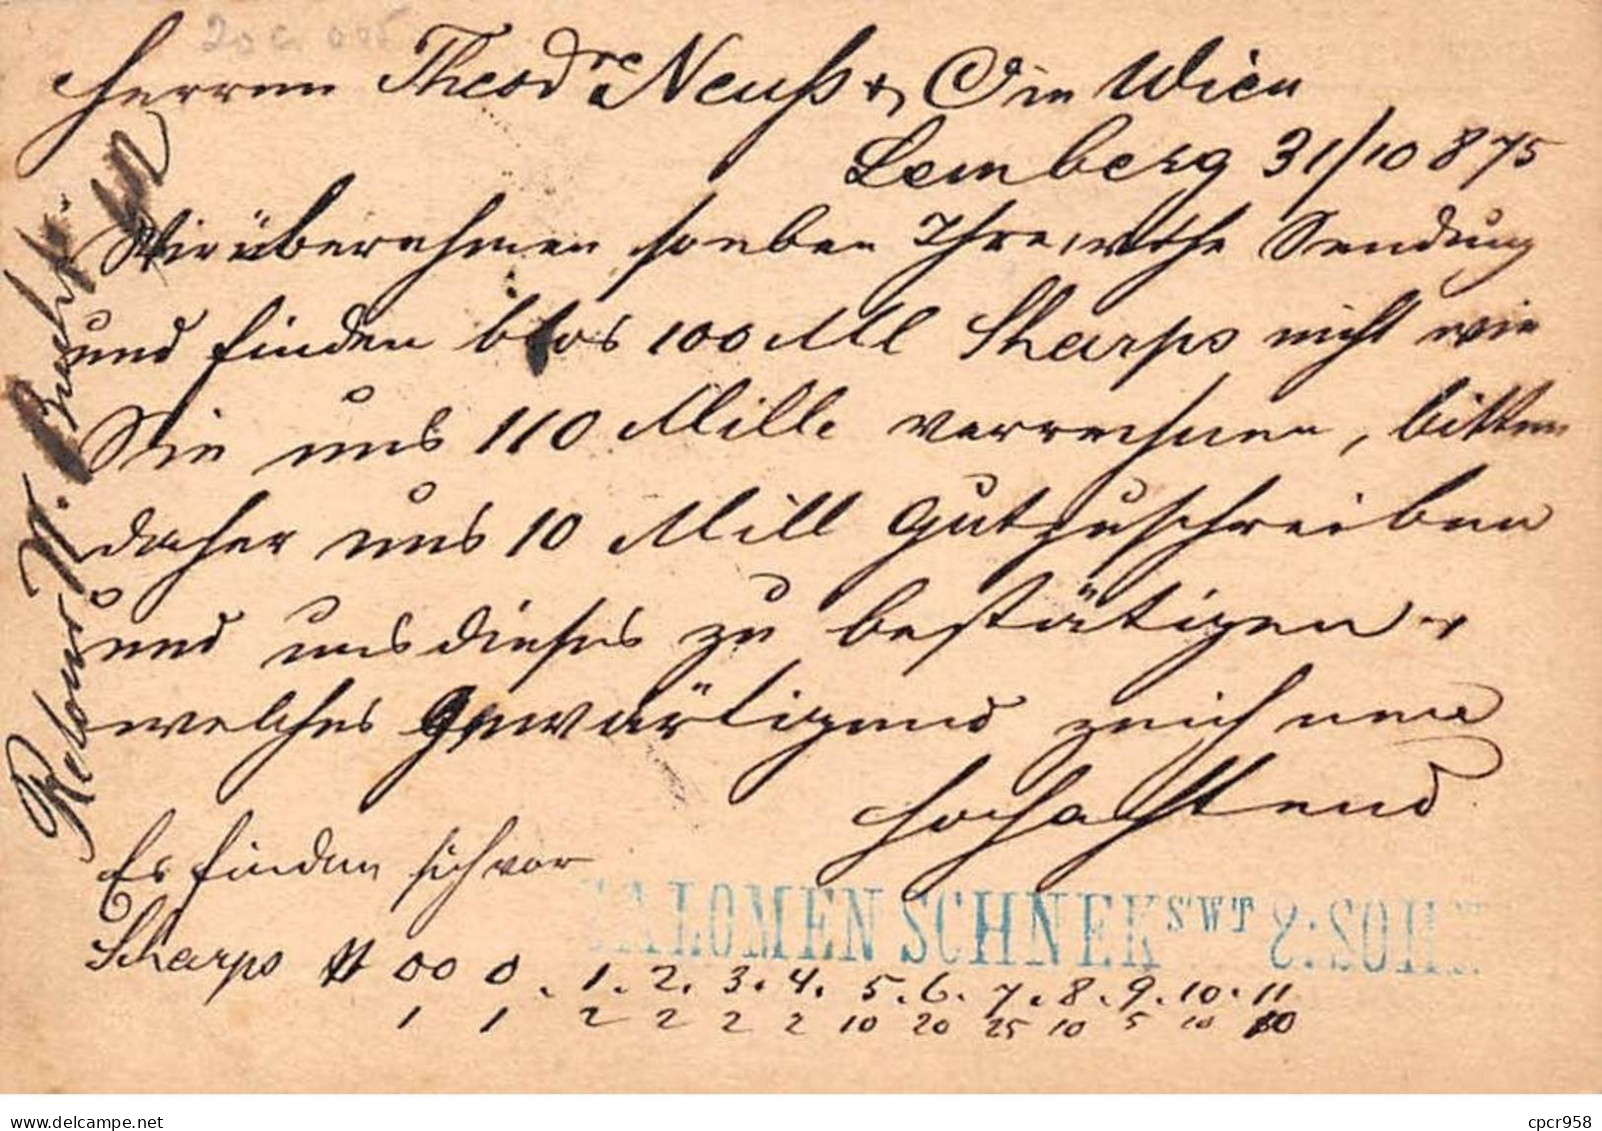 Herren Theodre Neuß & Co in Wien
Lemberg 31/10 875
Wir übernehmen soeben Ihre werthe Sendung
und finden blos 100 Mll Sharps nicht wie
Sie uns 110 Mille verrechnen, bitten
daher uns 10 Mill gutzuschreiben
und uns dieses zu bestätigen
welches gewärtigend zeichnen
hochachtend
Es finden sich vor
SALOMEN SCHNEK S'WT & SOHN
Sharps N 00 0 . 1. 2. 3. 4. 5. 6. 7. 8. 9. 10. 11
1 1 2 2 2 2 10 20 25 10 5 10 10
cpcr958